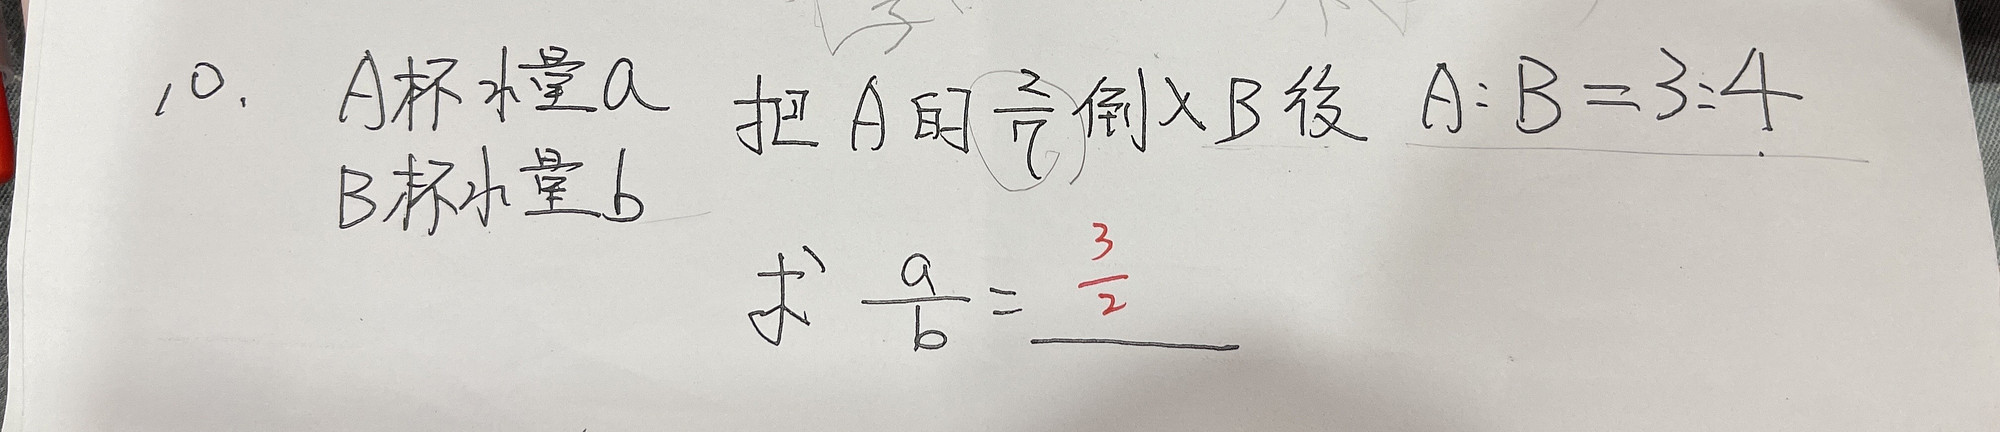 10. A杯水量a 把A的2/7倒入B後 A:B=3:4
B杯水量b
求 a/b = 3/2